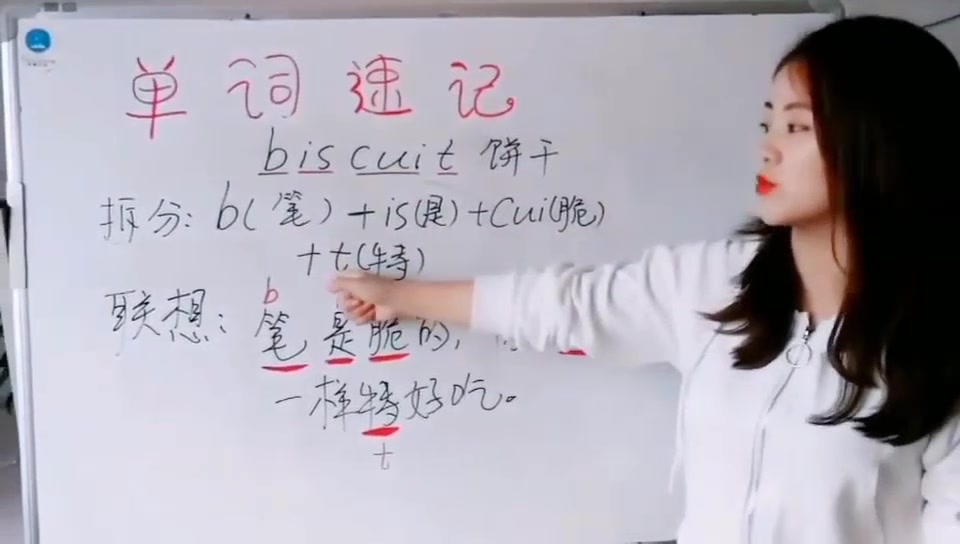 单词速记
biscuit 饼干
拆分: b(笔)+is(是)+Cui(脆)
+t(特)
b
联想: 笔是脆的,
一样特好吃。
t